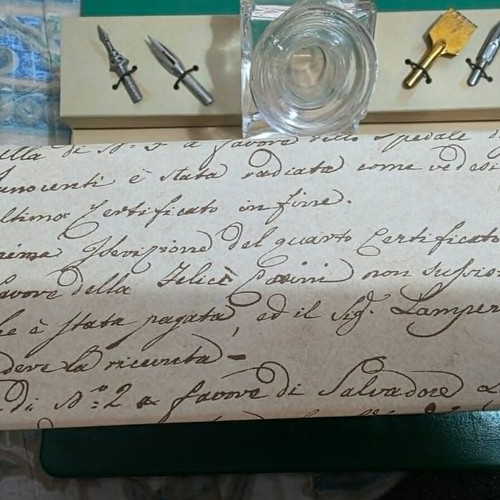 lla di N.º 3 a favore dello Spedale
nnocenti è stata radiata come vedesi
ltimo Certificato in fine.
rima Iscrizione del quarto Certificato
favore della Felice Pasini non sussis
he è stata pagata, ed il Sigʳ. Lamper
deve la ricevuta =
di N.º 2 a favore di Salvadore